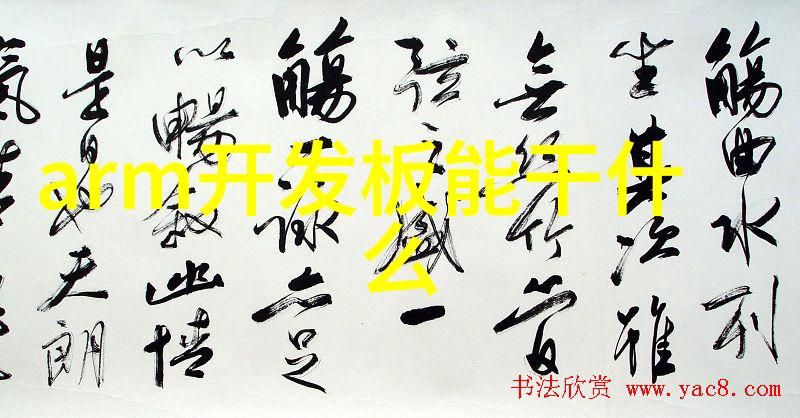 arm开发板能干什
么
觴曲水列
坐其次雖
無絲竹管
弦之盛一
觴一詠亦足
以暢叙幽情
是日也天朗
氣清
书法欣赏 www.yac8.com